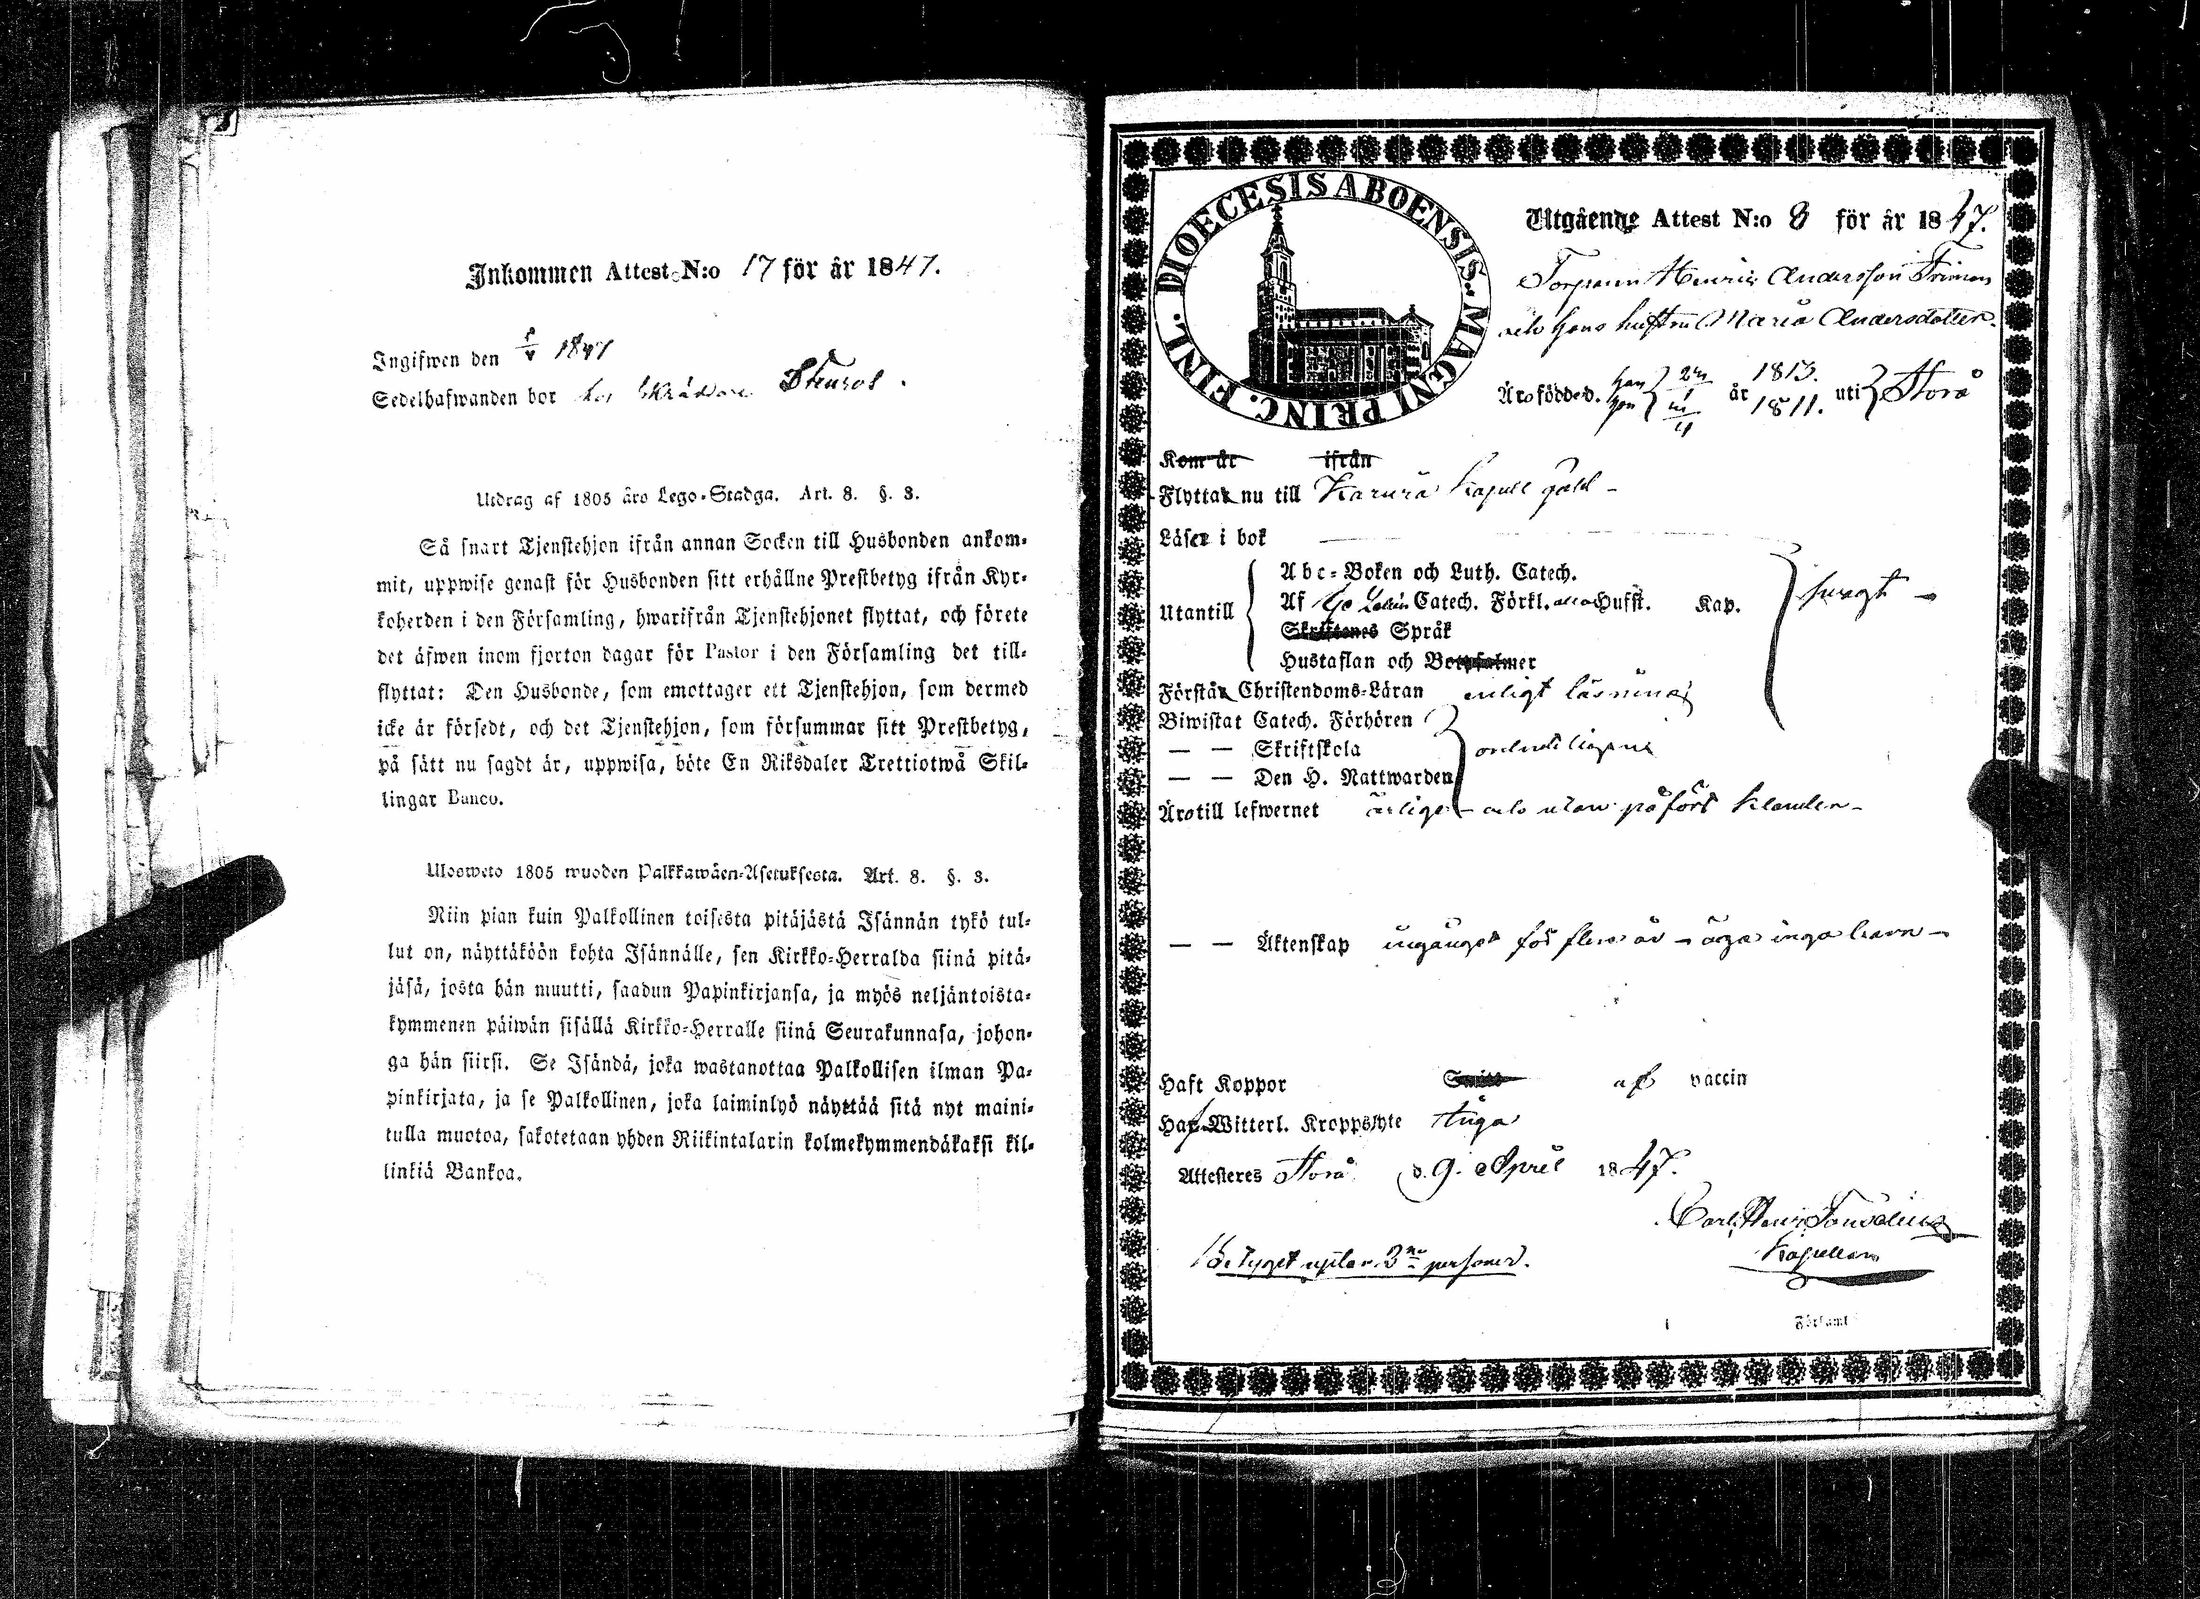 Inkommen Attest N:o 17 för år 1847.
Ingifwen den 1847
Sedelhafwanden bor hos Stenros.
Utdrag af 1805 års Lego-Stadga. Art. 8. §. 3.
Så snart Tjenstehjon ifrån annan Socken till Husbonden ankom-
mit, uppwise genast för Husbonden sitt erhållne Prestbetyg ifrån Kyr-
koherden i den Församling, hwarifrån Tjenstehjonet flyttat, och förete
det äfwen inom fjorton dagar för Pastor i den Församling det till-
flyttat: Den Husbonde, som emottager ett Tjenstehjon, som dermed
icke är försedt, och det Tjenstehjon, som försummar sitt Prestbetyg,
på sätt nu sagdt är, uppwisa, böte En Riksdaler Trettiotwå Skil-
lingar Banco.
Ulosweto 1805 wuoden Palkkawäen-Asetuksesta. Art. 8. §. 3.
Niin pian kuin Palkollinen toisesta pitäjästä Isännän tykö tul-
lut on, näyttäköön kohta Isännälle, sen Kirkko-Herralda siinä pitä-
jäsä, josta hän muutti, saadun Papinkirjansa, ja myös neljäntoista-
kymmenen päiwän sisällä Kirkko-Herralle siinä Seurakunnasa, johon-
ga hän siirsi. Se Isändä, joka wastanottaa Palkollisen ilman Pa-
pinkirjata, ja se Palkollinen, joka laiminlyö näyttää sitä nyt maini-
tulla muotoa, sakotetaan yhden Riikintalarin kolmekymmendäkaksi kil-
linkiä Bankoa.
DIOECESIS ABOENSIS. MAGNI PRINC. FINL.
Utgående Attest N:o 8 för år 1847.
Torparen Henric Andersson Friman
och hans hustru Maria Andersdotter.
Äro födde d. han hon år 1813. 1811. uti Storå
Kom år ifrån
Flytta nu till Karvia Kapell
Läser i bok
Utantill
Abc-Boken och Luth. Catech.
Af Catech. Förkl. Hufst. Kap.
Skriftenes Språk
Hustaflan och Botpsalmer
svagt
Förstå Christendoms-Läran enligt läsning
Biwistat Catech. Förhören
— — Skriftskola
— — Den H. Nattwarden
ordentligen
Äro till lefwernet ärlige och utan påförd klander
— — Äktenskap ingånget för flere år – äga inga barn –
Haft Koppor Smitt af vaccin
Haf Witterl. Kroppslyte Inga
Attesteres Storå d. 9. April 1847.
Kapellan
Betyget uptar 2ne personer.
Församl